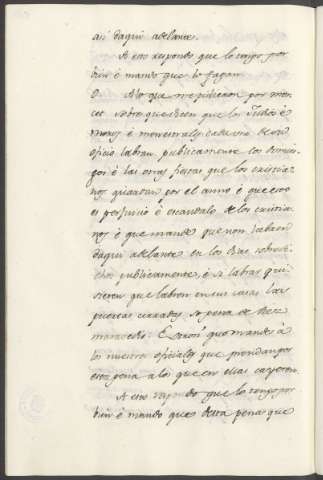 asi daqui adelante.
A esto respondo que lo tengo por
bien é mando que lo fagan
O. A lo que me pidieron por mer-
ced sobre que dicen que los Judios é
moros é menestrales cada uno de su
oficio labran publicamente los Domin-
gos é las otras fiestas que los cristia-
nos guardan por el anno é que esto
es perjuicio é escandalo de los cristia-
nos é que mande que non labren
daqui adelante en los dias sobredi-
chos publicamente, é si labrar qui-
sieren que labren en sus casas las
puertas cerradas, so pena de siete
maravedis: E sobresto que mande á
los nuestros oficiales que prendan por
esta pena a los que en ellas cayeren.
A esto respondo que lo tengo por
bien é mando que desta pena que